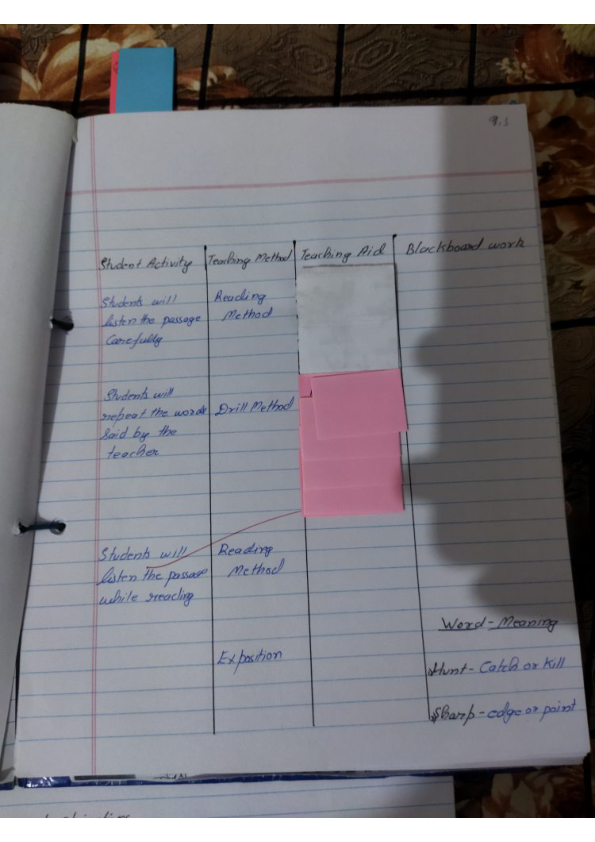 Student Activity Teaching Method Teaching Aid Blackboard work
Students will
listen the passage
Carefully
Reading
Method
Students will
repeat the words
said by the
teacher
Drill Method
Students will
listen the passage
while reading
Reading
Method
Exposition
Word - Meaning
Hunt - Catch or kill
Sharp - edge or point